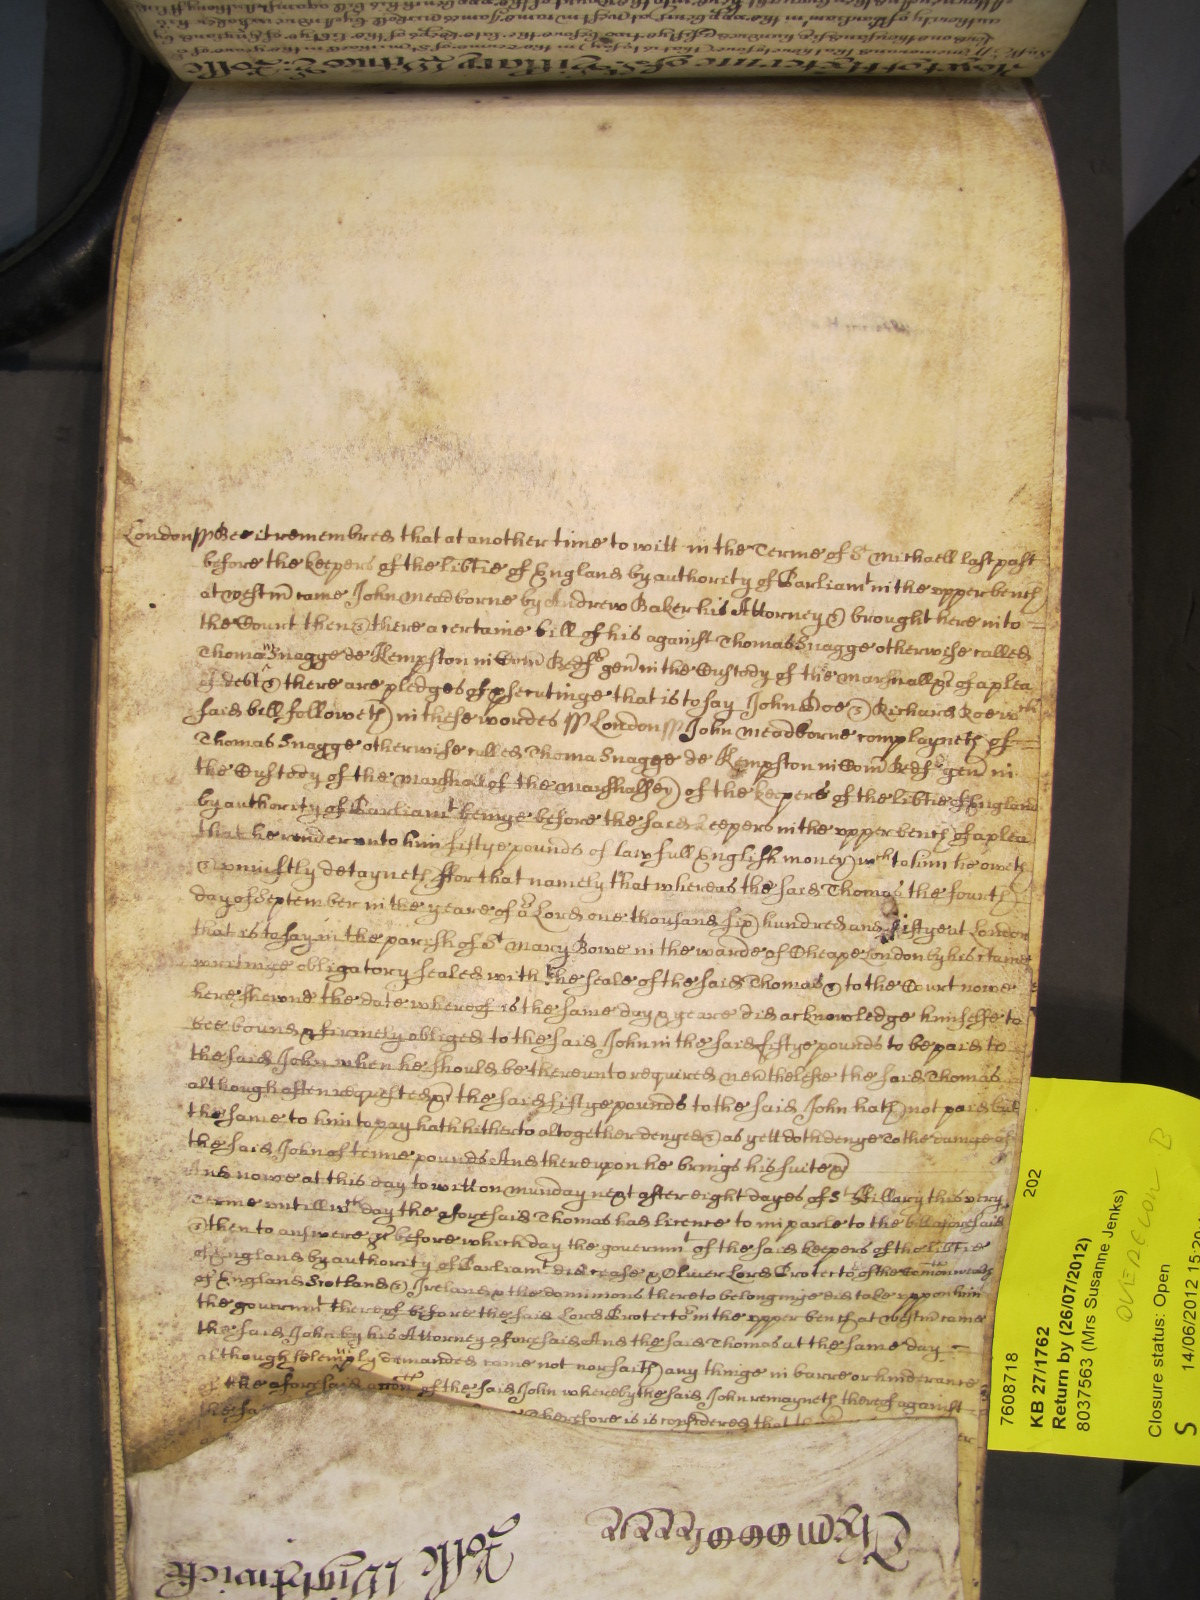 London ss Bee it remembred that at another time to witt in the Terme of St Michaell last past
before the keepers of the libtie of England by authority of Parliamt in the upper bench
at westm came John Meadborne by Andrew Baker his Attorney & brought here into
the Court then & there a certaine bill of his against Thomas Snagge otherwise called
Thomas Snagge de Kempston in Com Bedf gen in the Custody of the marshall &c of a plea
of debt & there are pledges of psecutinge that is to say John Doe & Richard Roe wch
said bill followeth in these wordes ss London ss John Meadborne complayneth of
Thomas Snagge otherwise called Thomas Snagge de Kempston in Com Bedf gen in
the Custody of the Marshall of the Marshalsey of the keepers of the libtie of England
by authority of Parliamt beinge before the said keepers in the upper bench of a plea
that he render unto him fiftye pounds of lawfull English money wch to him he oweth
& uniustly detayneth ffor that namely that whereas the said Thomas the fourth
day of September in the yeare of or Lord one thousand six hundred and fiftye at London
that is to say in the parish of St Mary Bowe in the warde of Cheape London by his ctaine
writinge obligatory sealed with the seale of the said Thomas & to the Court nowe
here shewne the date whereof is the same day & yeare did acknowledge himselfe to
bee bound & firmely obliged to the said John in the said fiftye pounds to be paid to
the said John when he should be thereunto required nevthelesse the said Thomas
although often requested &c the said fiftye pounds to the said John hath not paid but
the same to him to pay hath hitherto altogether denyed & as yett doth denye To the damage of
the said John of tenne pounds And thereupon he brings his suite &c
And nowe at this day to witt on munday next after eight dayes of St Hillary this very
Terme untill wch day the aforesaid Thomas had licence to imparle to the bill aforesaid
& then to answere &c before which day the governmt of the said keepers of the libtie
of England by authority of Parliamt did cease & Oliver Lord Protector of the Comonwealth
of England Scotland & Ireland & the dominions thereto belonginge did take uppon him
the governmt thereof before the said Lord Protector in the upper bench at Westm came
the said John by his Attorney aforesaid And the said Thomas at the same day
although solemply demanded came not nor saith any thinge in barre or hinderance
of the aforesaid accon of the said John whereby the said John remayneth thereof against
the sa Therefore it is considered that
7608718 202
KB 27/1762
Return by (26/07/2012)
8037563 (Mrs Susanne Jenks)
Closure status: Open
S 14/06/2012 15:20